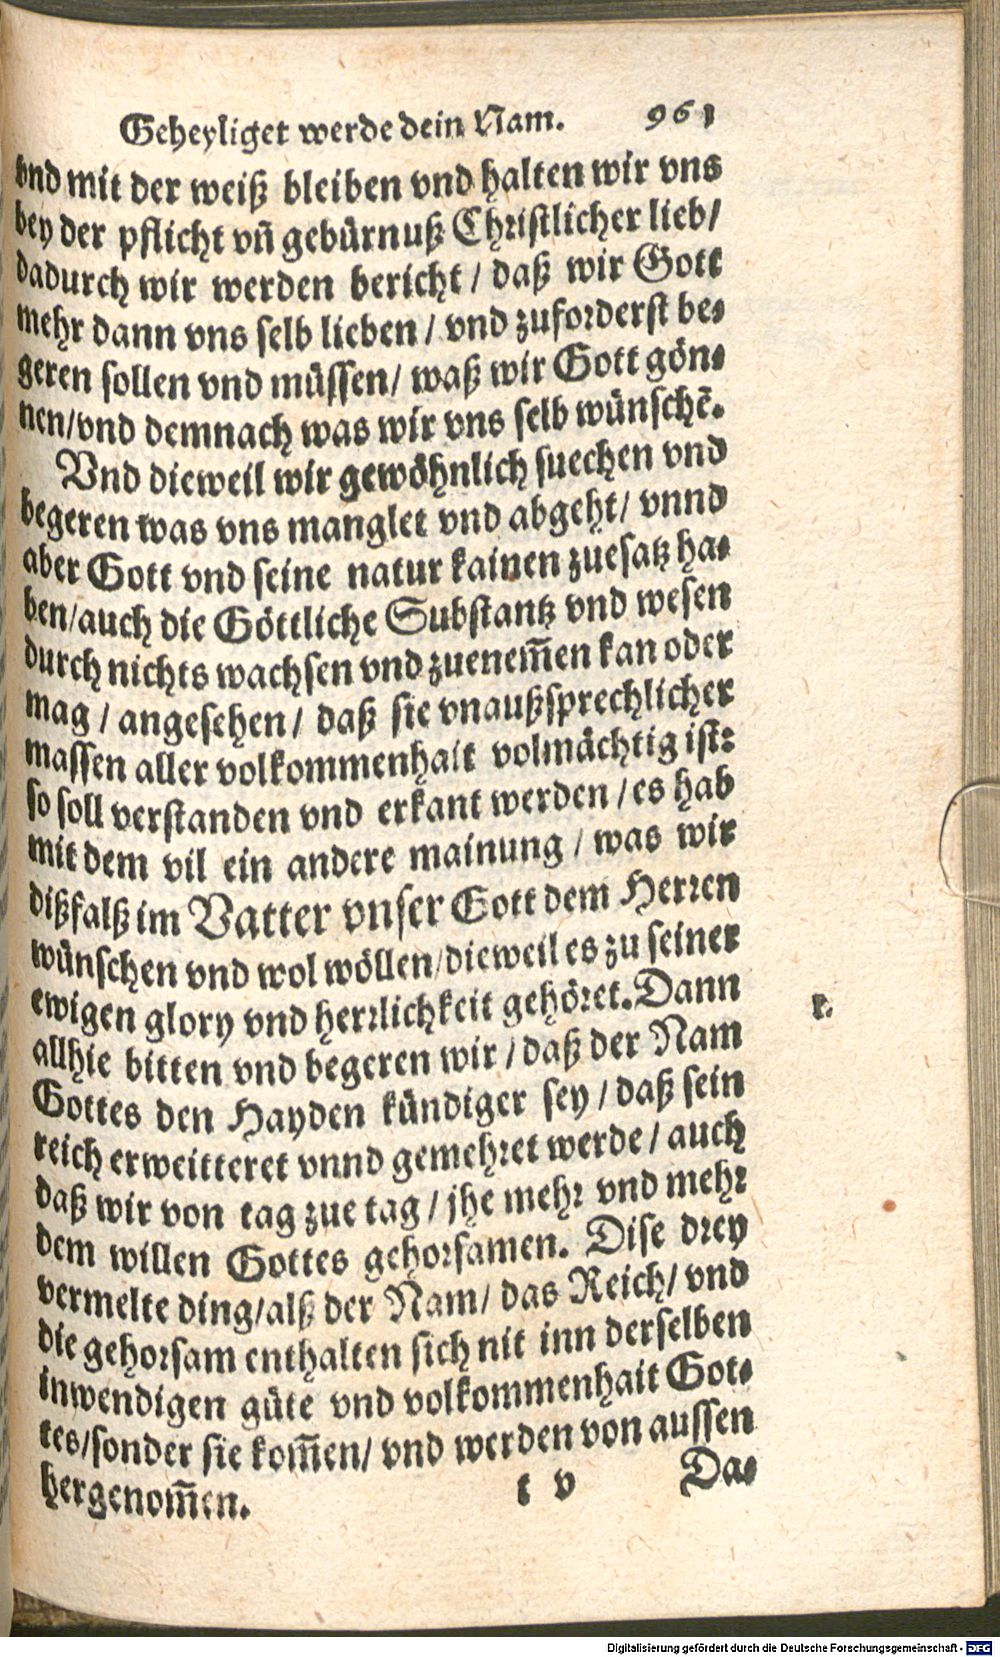 Geheyliget werde dein Nam. 961
vnd mit der weiß bleiben vnd halten wir vns
bey der pflicht vñ gebürnuß Christlicher lieb/
dadurch wir werden bericht / daß wir Gott
mehr dann vns selb lieben / vnd zuforderst be-
geren sollen vnd müssen/ waß wir Gott gön-
nen/vnd demnach was wir vns selb wünschẽ.
Vnd dieweil wir gewöhnlich suechen vnd
begeren was vns manglet vnd abgeht/ vnnd
aber Gott vnd seine natur kainen zuesatz ha-
ben/auch die Göttliche Substantz vnd wesen
durch nichts wachsen vnd zuenem̃en kan oder
mag / angesehen/ daß sie vnaußsprechlicher
massen aller volkommenhait volmächtig ist:
so soll verstanden vnd erkant werden / es hab
mit dem vil ein andere mainung / was wir
dißfalß im Vatter vnser Gott dem Herren
wünschen vnd wol wöllen/dieweil es zu seiner
ewigen glory vnd herrlichkeit gehöret.Dann
r.
allhie bitten vnd begeren wir / daß der Nam
Gottes den Hayden kündiger sey / daß sein
reich erweitteret vnnd gemehret werde / auch
daß wir von tag zue tag / jhe mehr vnd mehr
dem willen Gottes gehorsamen. Dise drey
vermelte ding/alß der Nam/ das Reich/ vnd
die gehorsam enthalten sich nit inn derselben
inwendigen güte vnd volkommenhait Got-
tes/sonder sie kom̃en/ vnd werden von aussen
hergenom̃en.
t v Da-
Digitalisierung gefördert durch die Deutsche Forschungsgemeinschaft - DFG